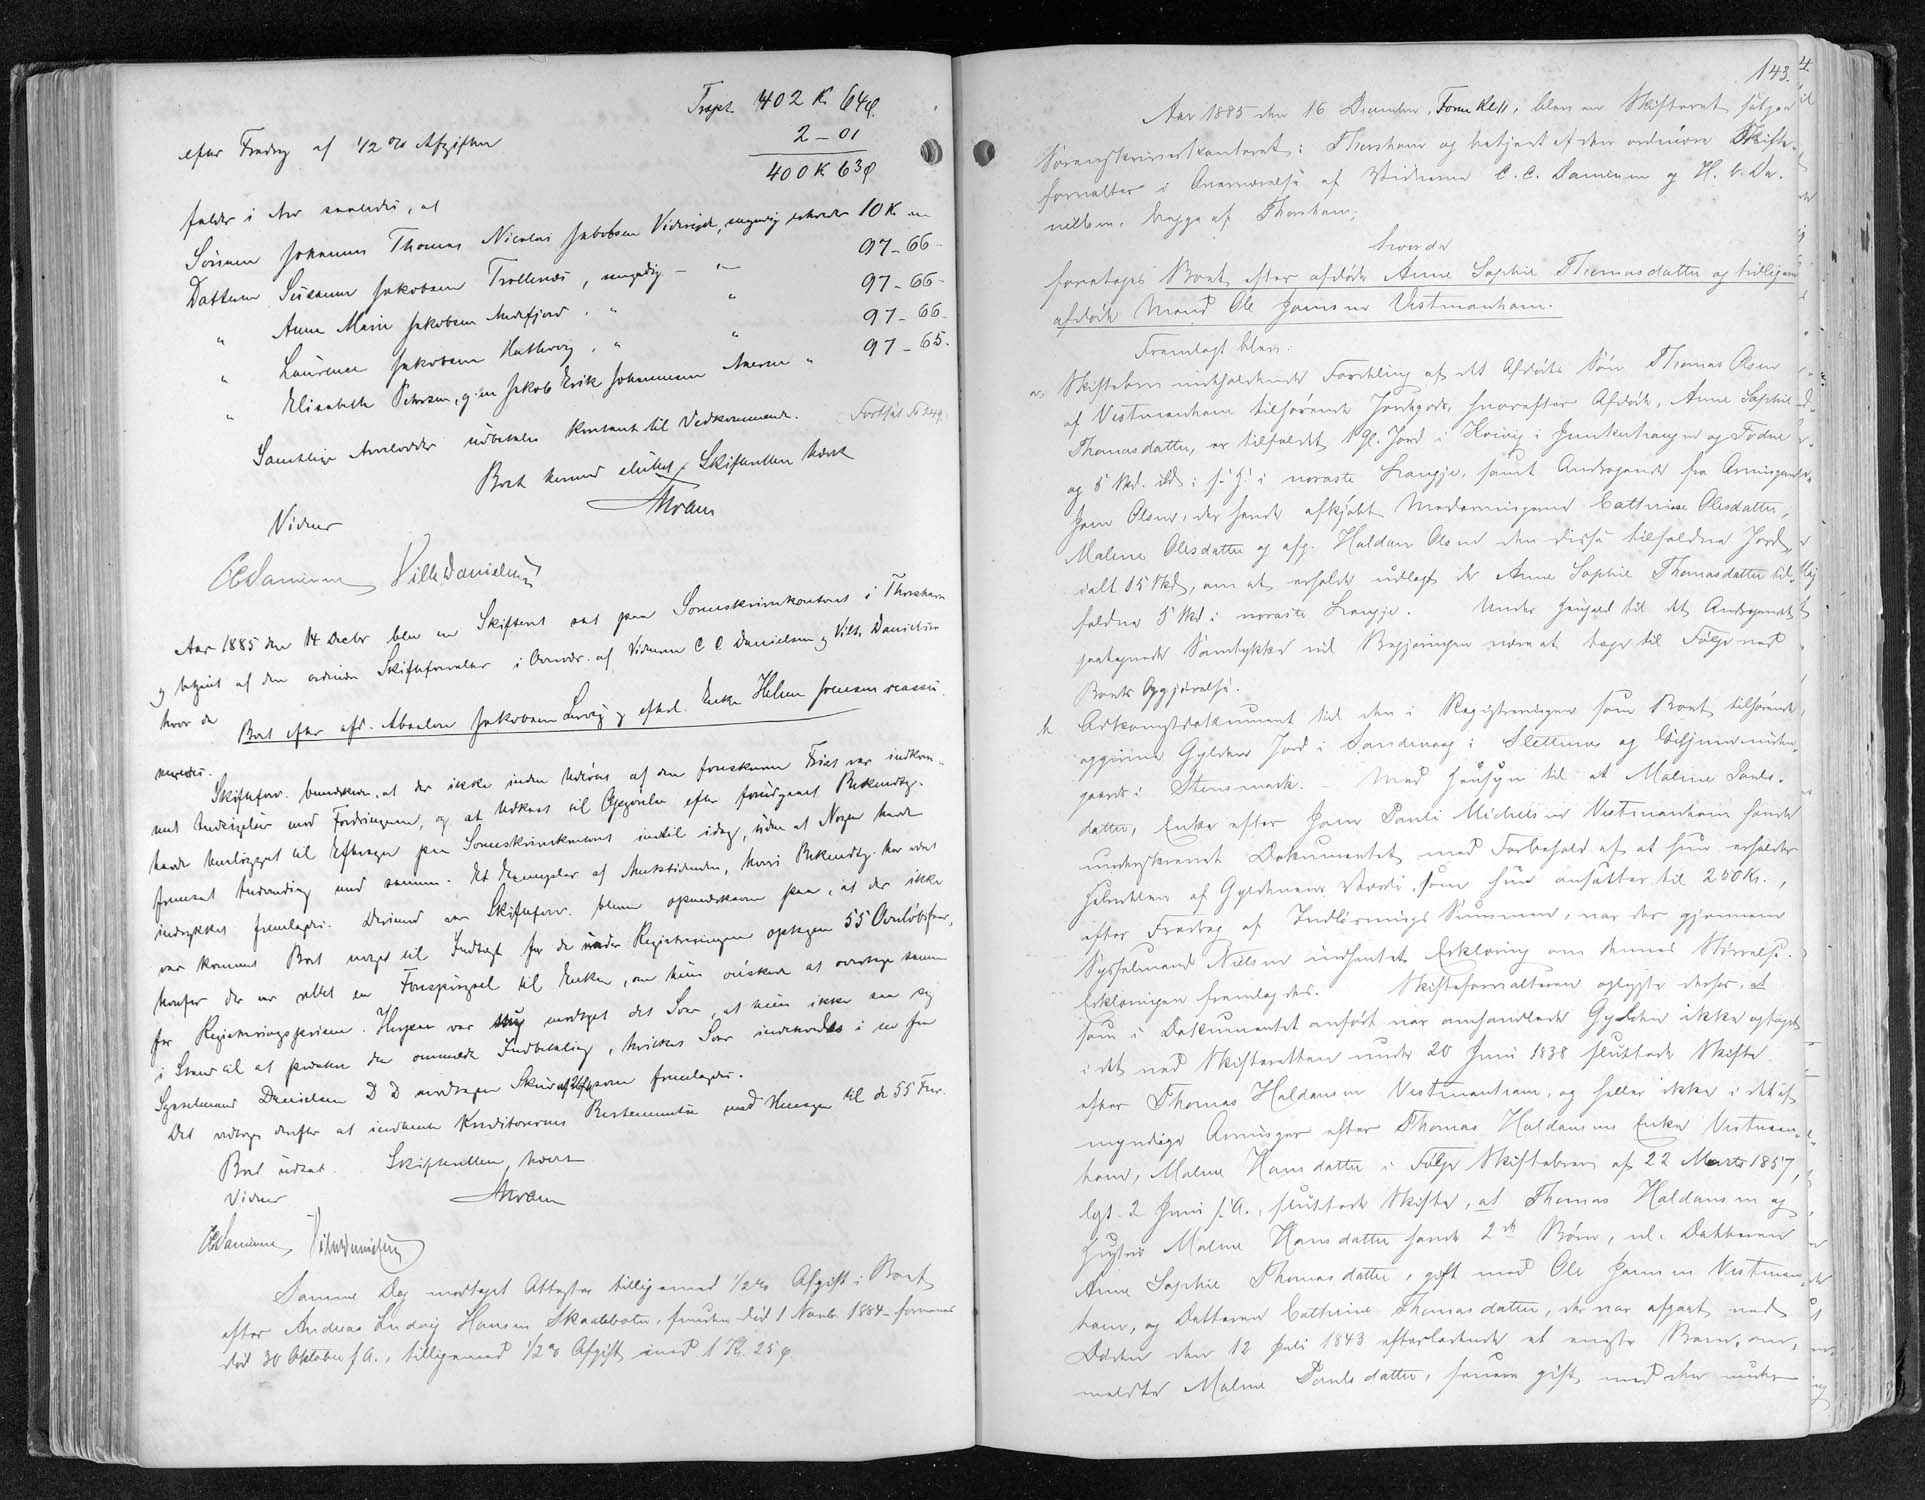 Trspt. 402 K. 64 ø.
efter Fradrag af 1/2 % Afgiften 2 - 01
400 K 63 ø
falder i Arv saaledes, at
Sønnen Johannes Thomas Nicolai Jakobsen Videreide, myndig erholder 10 K -
Datteren Susanne Jakobsen Trøllenæs, myndig - " - 97 - 66 -
" Anne Marie Jakobsen Andefjord, " " 97 - 66 -
" Laurence Jakobsen Hattervig, " " 97 - 66 -
" Elisabeth Petersen, g. m. Jakob Erik Johannesen " 97 - 65 -
Samtlige Arvelodder udbetales kontant til Vedkommende. (Fortsat No 249.)
Boet hermed sluttet. Skifteretten hævet
Vidner
CCDanielsen VilhDanielsen
Aar 1885 den 14 Decbr blev en Skifteret sat paa Sorenskriverkontoret i Thorshavn
og betjent af den ordinære Skifteforvalter i Overvær. af Vidnerne C C Danielsen og Vilh. Danielsen
hvor da
Boet efter afd. Absalon Jakobsen og efterl. Enke Helene Joensen reassu-
meredes.
Skifteforv. bemærkede, at der ikke inden Udløbet af den foreskrevne Frist var indkom-
met Indsigelser mod Fordringerne, og at Udkast til Opgørelse efter forudgaaet Bekendtg.
havde henligget til Eftersyn paa Sorenskriverkontoret indtil idag, uden at Nogen havde
fremsat Indvending mod samme. Et Exemplar af Amtstidenden, hvori Bekendtg. har været
indrykket fremlagdes. Derimod var Skifteforv. bleven opmærksom paa, at der ikke
var kommet Boet noget til Indtægt for de under Registreringen optagne 55
hvorfor der var rettet en Forespørgsel til Enken, om hun ønskede at overtage samme
for Registreringsprisen. Herpaa var modtaget det Svar, at hun ikke saa sig
i Stand til at præstere den ommeldte Indbetaling, hvilket Svar indeholdes i en fra
Sysselmand Danielsen D D modtagen Skrivelse som fremlagdes.
Det vedtoges derefter at indhente Kreditorernes Bestemmelse med Hensyn til de 55
Boet udsat. Skifteretten hævet
Vidner
CCDanielsen VilhDanielsen
Samme Dag modtaget Attester tilligemed 1/2 % Afgift i Boet
efter Andreas Ludvig Hansen Skaalebotn, død 1 Novb. 1884
død 30 Oktober f. A., tilligemed 1/2 % Afgift med 1 Kr. 25 ø.
143.
Aar 1885 den 16 December, Form. Kl 11, blev en Skifteret sat paa
Sorenskriverkontoret i Thorshavn og betjent af den ordinære Skifte-
forvalter i Overværelse af Vidnerne C. C. Danielsen og H. V. Da-
nielsen, begge af Thorshavn;
hvorda
foretoges Boet efter afdøde Anne Sophie Thomasdatter og tidligere
afdøde Mand Ole Joensen Vestmanhavn.
Fremlagt blev:
a, Skiftebrev indeholdende Fordeling af det Afdødes Søn Thomas Olsen
af Vestmanhavn tilhørende Jordegods, hvorefter Afdøde, Anne Sophie
Thomasdatter, er tilfaldet 1 Gl. Jord i Kvivig i og
og 5 Skd. ibd: i samt Andragende fra Arvingen
Jens Olsen, der havde afkjøbt Medarvingerne Cathrine Olesdatter,
Malene Olesdatter og afg. Haldan Olsen den disse tilfaldne Jord,
ialt 15 Skd, om at erholde udlagt de Anne Sophie Thomasdatter til-
faldne 5 Skd. i Under Henhold til det Andragendet
paategnede Samtykke vil Begjæringen være at tage til Følge ved
Boets Opgjørelse.
b, Adkomstdokument til den i Registreringen som Boet tilhørende
opgivne Gylden Jord i Sandevaag i Slettenes og
gaard i Steensmark. - Med Hensyn til at Malene Pouls-
datter, Enke efter Joen Pauli Michelsen Vestmanhavn havde
underskrevet Dokumentet med Forbehold af at hun erholder
Halvdelen af Gyldenens Værdi, som hun ansætter til 250 Kr.,
efter Fradrag af Indløsnings Summen, var der gjennem
Sysselmand Nielsen indhentet Erklæring om dennes Størrelse.
Erklæringen fremlagdes. Skifteforvalteren oplyste derhos, at
som i Dokumentet anført var omhandlede Gylden ikke optaget
i det ved Skifteretten under 20 Juni 1838 sluttede Skifte
efter Thomas Haldansen Vestmanhavn, og heller ikke i det af
myndige Arvinger efter Thomas Haldansens Enke Vestman-
havn, Malene Hansdatter i Følge Skiftebrev af 22 Marts 1857,
lgt. 2 Juni s. A., sluttede Skifte, at Thomas Haldansen og
Hustru Malene Hansdatter havde 2de Børn, nl. Datteren
Anne Sophie Thomasdatter, gift med Ole Joensen Vestman-
havn, og Datteren Cathrine Thomasdatter, der var afgaaet ved
Døden den 12 Juli 1843 efterladende et eneste Barn, om-
meldte Malene Poulsdatter, senere gift med den nu